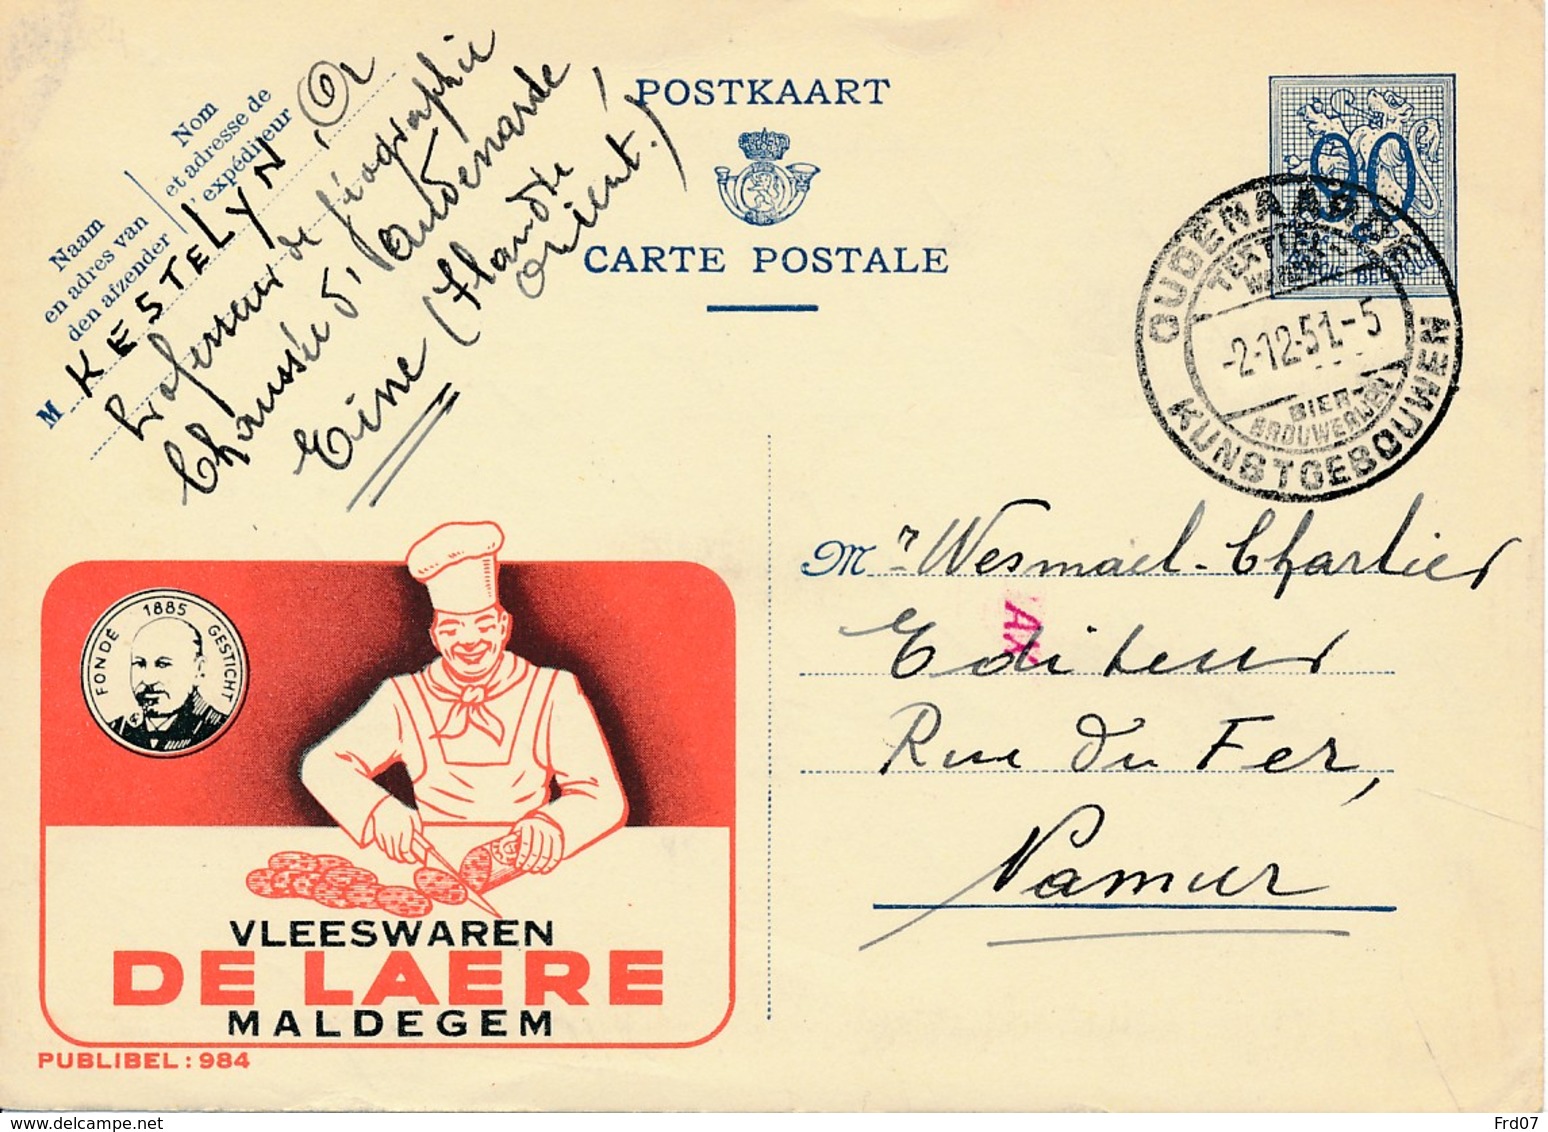 Nom
et adresse de
l'expéditeur
Naam
en adres van
den afzender
M KESTELYN, Or
Professeur de géographie
Chaussée d'Audenarde,
Eine (Flandre
Orient.)
POSTKAART
CARTE POSTALE
90
BELGIQUE
OUDENAARDE
TEXTIEL
-2-12-51.-5
BIER-
BROUWERIJEN
KUNSTGEBOUWEN
Mr Wesmael-Charlier
AK
Editeur
Rue du Fer,
Namur
FONDÉ 1885 GESTICHT
VLEESWAREN
DE LAERE
MALDEGEM
PUBLIBEL : 984
Frd07